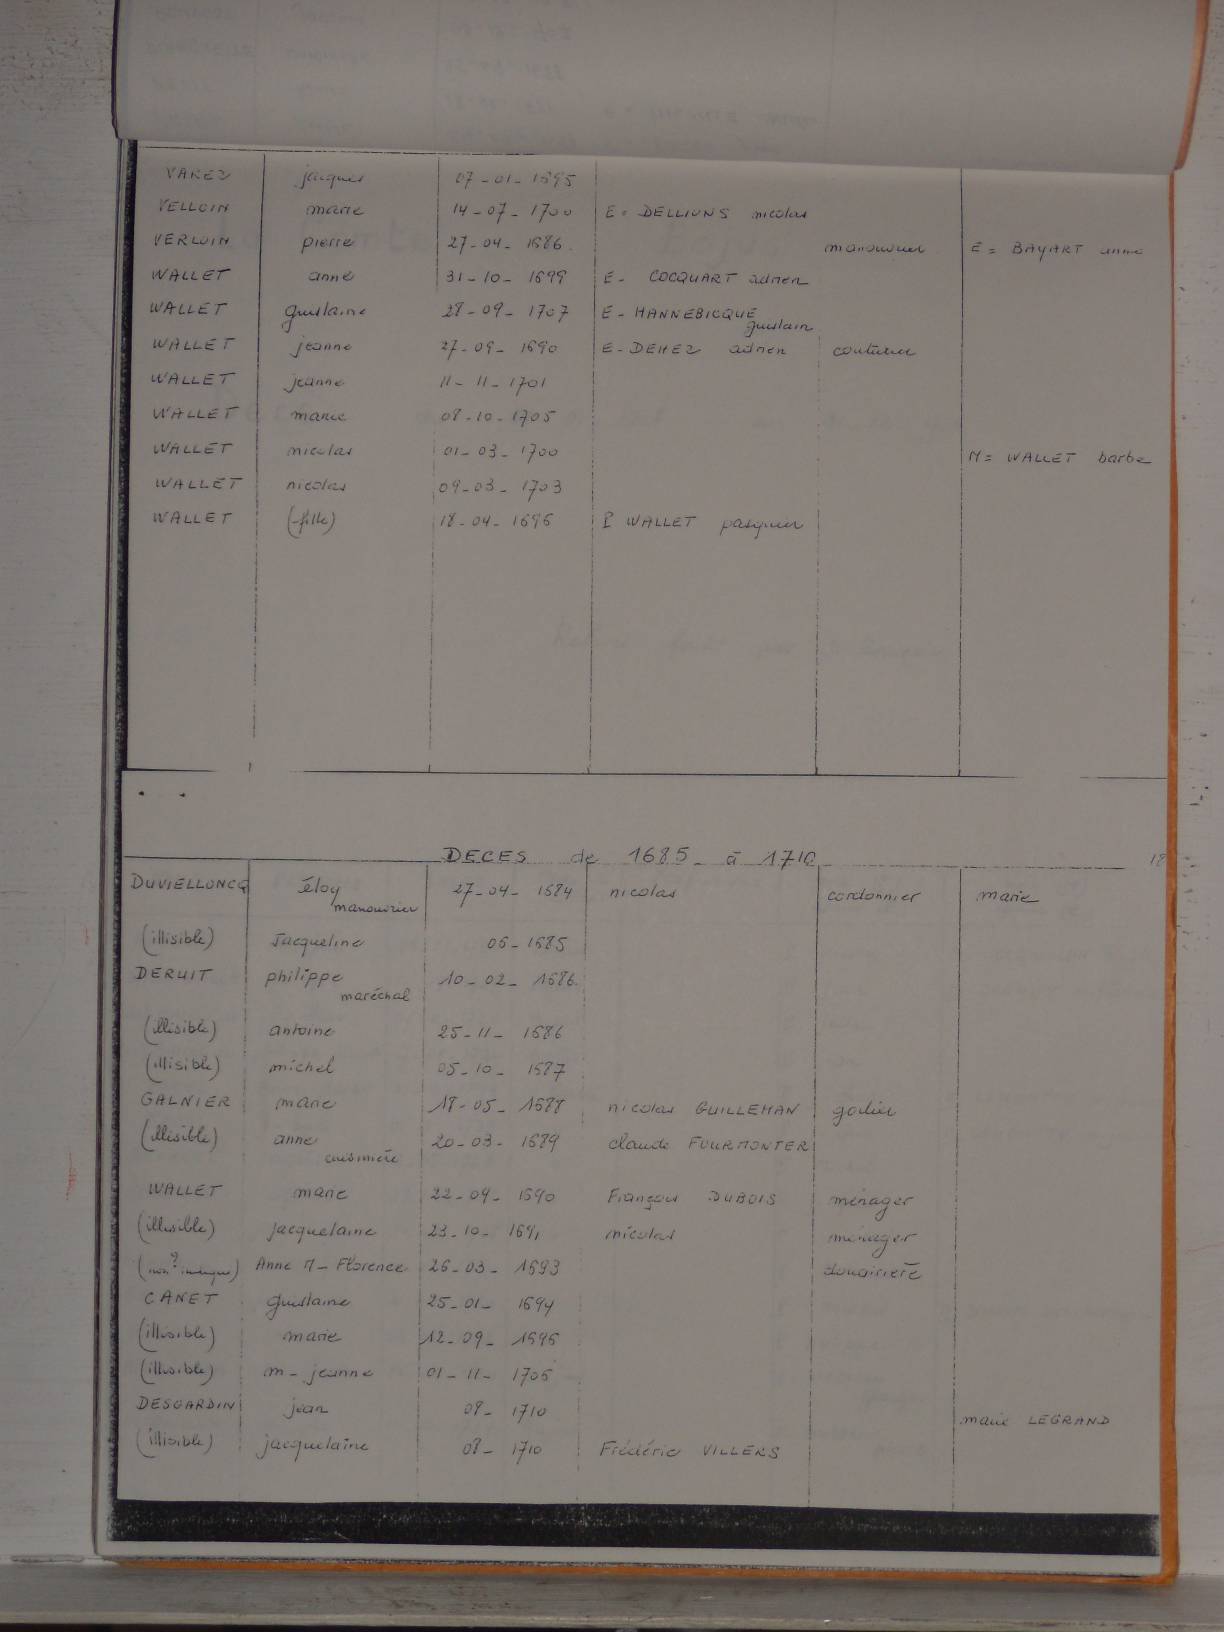 VAREZ jacques 07-01-1695
VELLOIN marie 14-07-1700 E= DELLIONS nicolas
VERLOIN pierre 27-04-1686 manouvrier E= BAYART anne
WALLET anne 31-10-1699 E- COCQUART adrien
WALLET guislaine 28-09-1707 E- HANNEBICQUE guislain
WALLET jeanne 27-09-1690 E-DEHEZ adrien couturier
WALLET jeanne 11-11-1701
WALLET marie 08-10-1705
WALLET nicolas 01-03-1700 M= WALLET barbe
WALLET nicolas 09-03-1703
WALLET (-fille) 18-04-1696 P WALLET pasquier
DECES de 1685 - à 1710 18
DUVIELLONCQ éloy manouvrier 27-04-1684 nicolas cordonnier marie
(illisible) Jacqueline 06-1685
DERUIT philippe maréchal 10-02-1686
(illisible) antoine 25-11-1686
(illisible) michel 05-10-1687
GALNIER marie 18-05-1688 nicolas GUILLEMAN
(illisible) anne cuisinière 20-03-1689 claude FOURMONTER
WALLET marie 22-09-1690 François DUBOIS ménager
(illisible) jacquelaine 23-10-1691 nicolas ménager
(non indiqué) ? Anne M-Florence 26-03-1693 douairière
CANET guislaine 25-01-1694
(illisible) marie 12-09-1696
(illisible) m-jeanne 01-11-1705
DESGARDIN jean 08-1710 marie LEGRAND
(illisible) jacquelaine 08-1710 Frédéric VILLERS